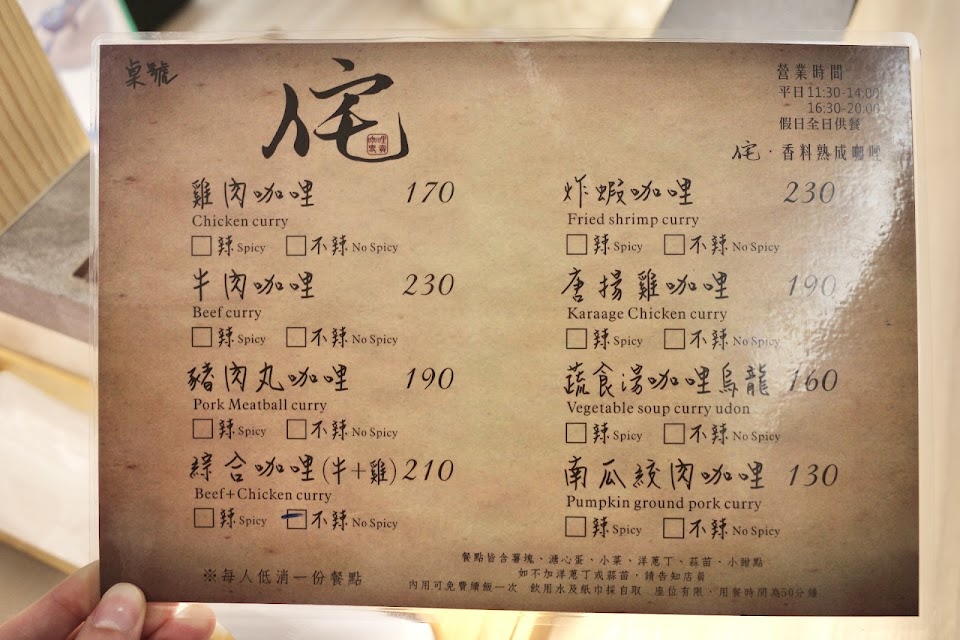 桌號
侘
營業時間
平日11:30-14:00
16:30-20:00
假日全日供餐
侘·香料熟成咖哩
雞肉咖哩 170
Chicken curry
辣 Spicy 不辣 No Spicy
牛肉咖哩 230
Beef curry
辣 Spicy 不辣 No Spicy
豬肉丸咖哩 190
Pork Meatball curry
辣 Spicy 不辣 No Spicy
綜合咖哩(牛+雞) 210
Beef+Chicken curry
辣 Spicy 不辣 No Spicy
炸蝦咖哩 230
Fried shrimp curry
辣 Spicy 不辣 No Spicy
唐揚雞咖哩 190
Karaage Chicken curry
辣 Spicy 不辣 No Spicy
蔬食湯咖哩烏龍 160
Vegetable soup curry udon
辣 Spicy 不辣 No Spicy
南瓜絞肉咖哩 130
Pumpkin ground pork curry
辣 Spicy 不辣 No Spicy
※每人低消一份餐點
餐點皆含薯塊、溏心蛋、小菜、洋蔥丁、蒜苗、小甜點
如不加洋蔥丁或蒜苗,請告知店員
內用可免費續飯一次 飲用水及紙巾採自取 座位有限,用餐時間為50分鐘